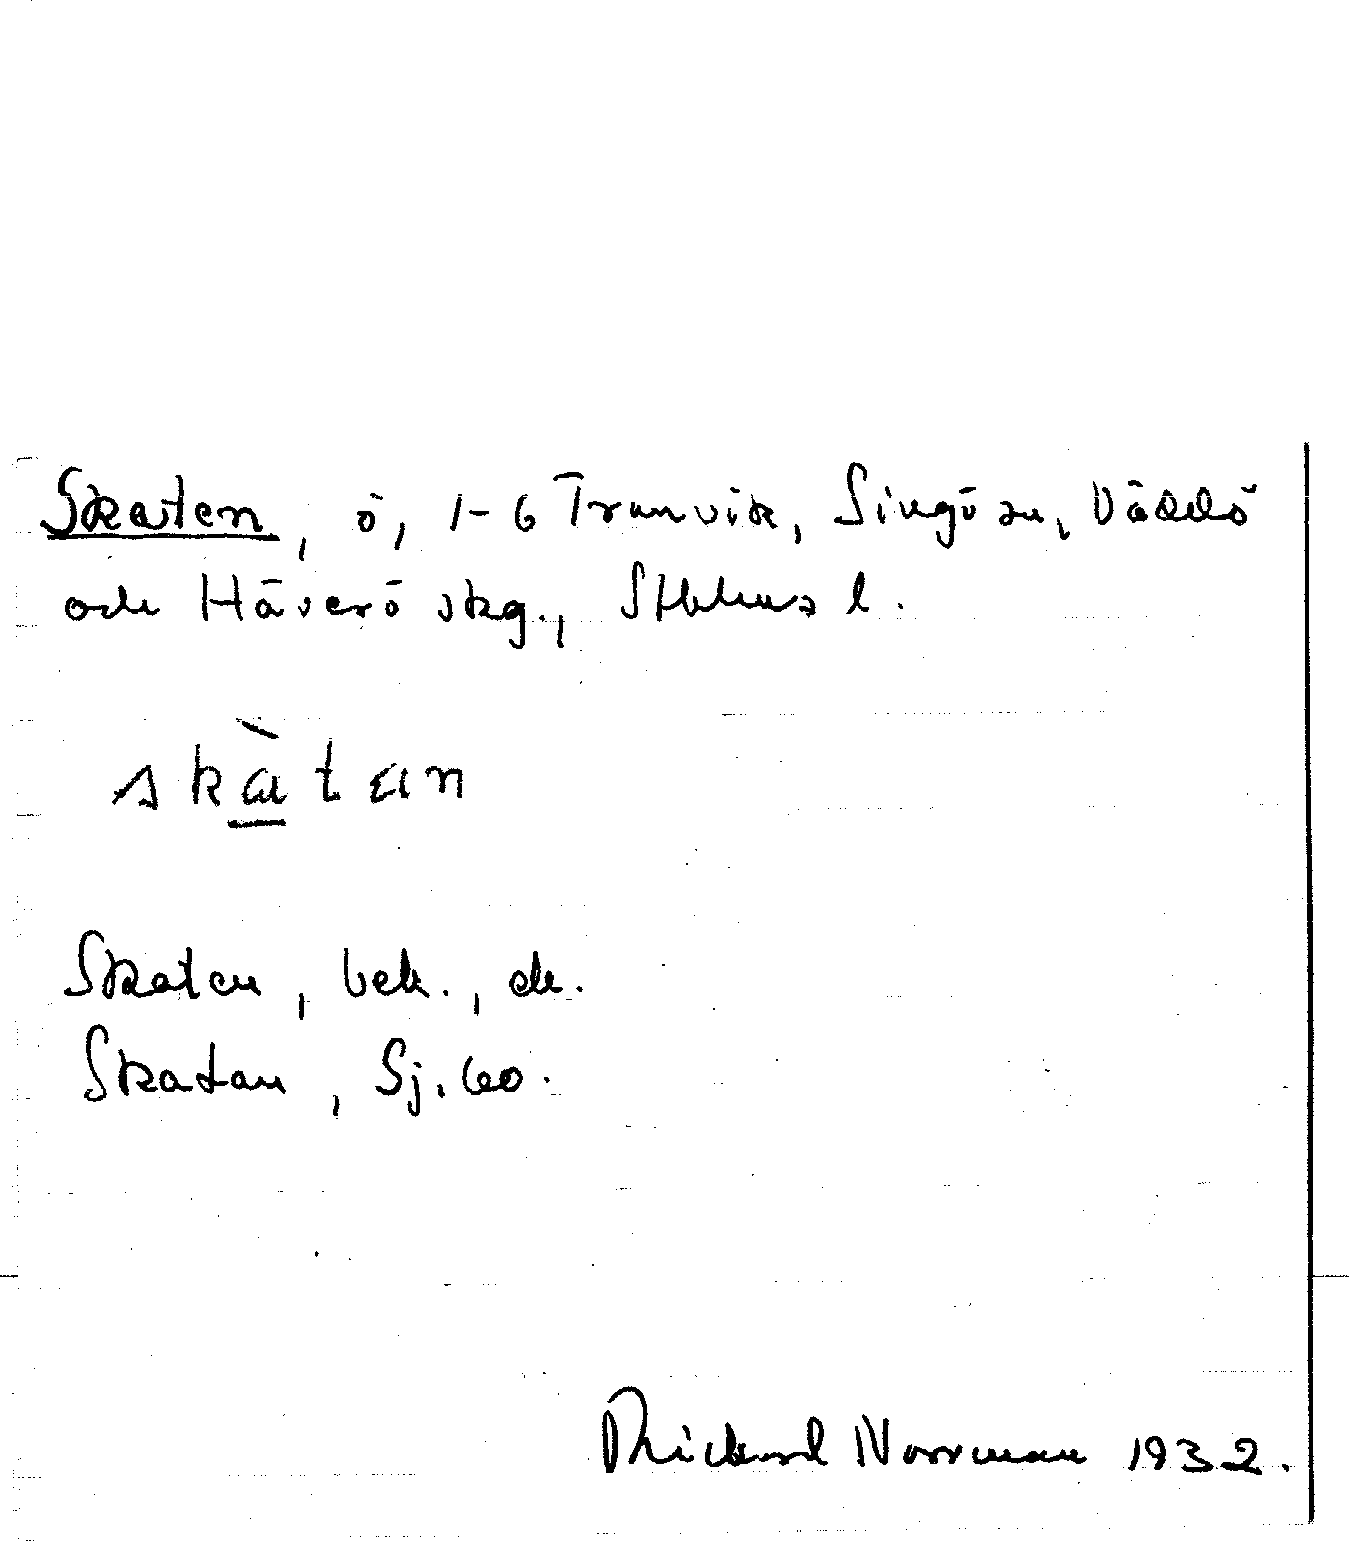 Skaten, ö, 1-6 Tranvik, Singö sn, Väddö
och Häverö skg., Sthlms l.
skàtan
Skaten, bek., ek.
Skatan, Sj. 60.
Rickard Norrman 1932.